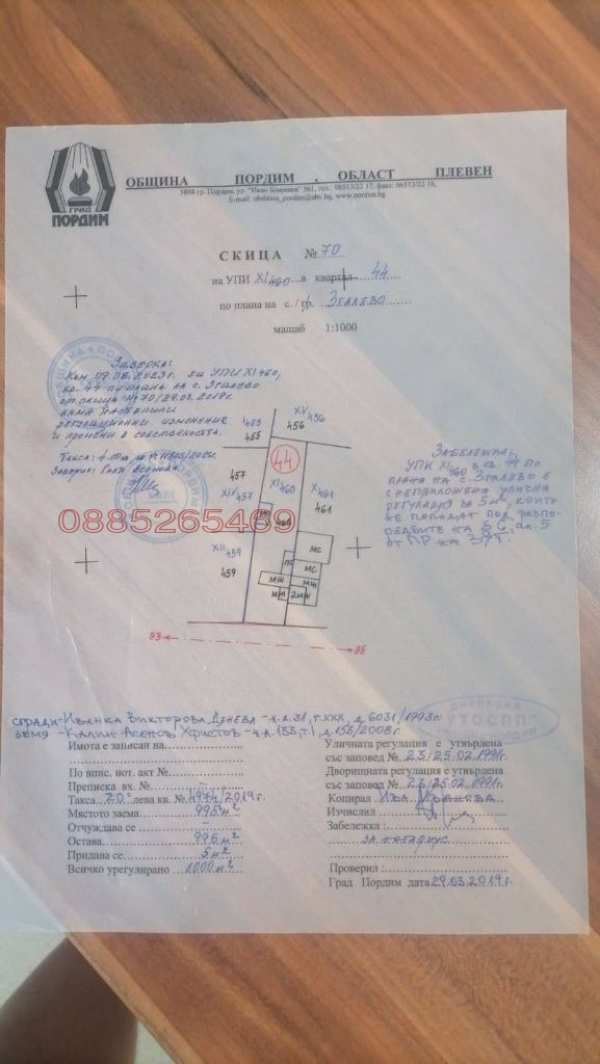 ГРАД
ПОРДИМ
ОБЩИНА ПОРДИМ , ОБЛАСТ ПЛЕВЕН
5898 гр. Пордим, ул. "Иван Божинов" №1, тел. 06513/22 17, факс: 06513/22 18,
E-mail: obshtina_pordim@abv.bg, www.pordim.bg
СКИЦА №70
на УПИ XI460 в квартал 44
по плана на с. / гр. Згалево
мащаб 1:1000
Заверка:
Към 07.06.2023г. за УПИ XI460,
кв. 44 по плана на с. Згалево
от скица №70/29.03.2019г.
няма настъпили
регулационни изменение
и промени в собствеността.
Такса: 4.00лв
Заверил:
ЗАБЕЛЕЖКА:
УПИ XI460 в кв. 44 по
плана на с. Згалево е
с неприложена улична
регулация за 5м², които
не попадат под разпо-
редбите на §6, ал. 5
от ПР на ЗУТ.
455
455
XV456
456
44
457
XIV457
XI
460
X461
461
460
0885265469
XII459
459
МС
ПС
МС
МЖ
МЖ
МЖ
2МЖ
93
95
сгради-Иванка Викторова Денева - н.а.31, т.XXX, д.6031/1993г.
земя -Калин Асенов Христов - н.а.133, т.I, д.153/2008г.
Имота е записан на
По впис. нот. акт №
Преписка вх. №
Такса 20 лева кв. № 4974/2019г.
Мястото заема 995м²
Отчуждава се –
Остава 995м²
Придава се 5м²
Всичко урегулирано 1000м²
Уличната регулация е утвърдена
със заповед № 23/25.02.1991г.
Дворищната регулация е утвърдена
със заповед № 23/25.02.1991г.
Копирал Ива Иванова
Изчислил
Забележка :
за нотариус
Проверил :
Град Пордим дата 29.03.2019г.